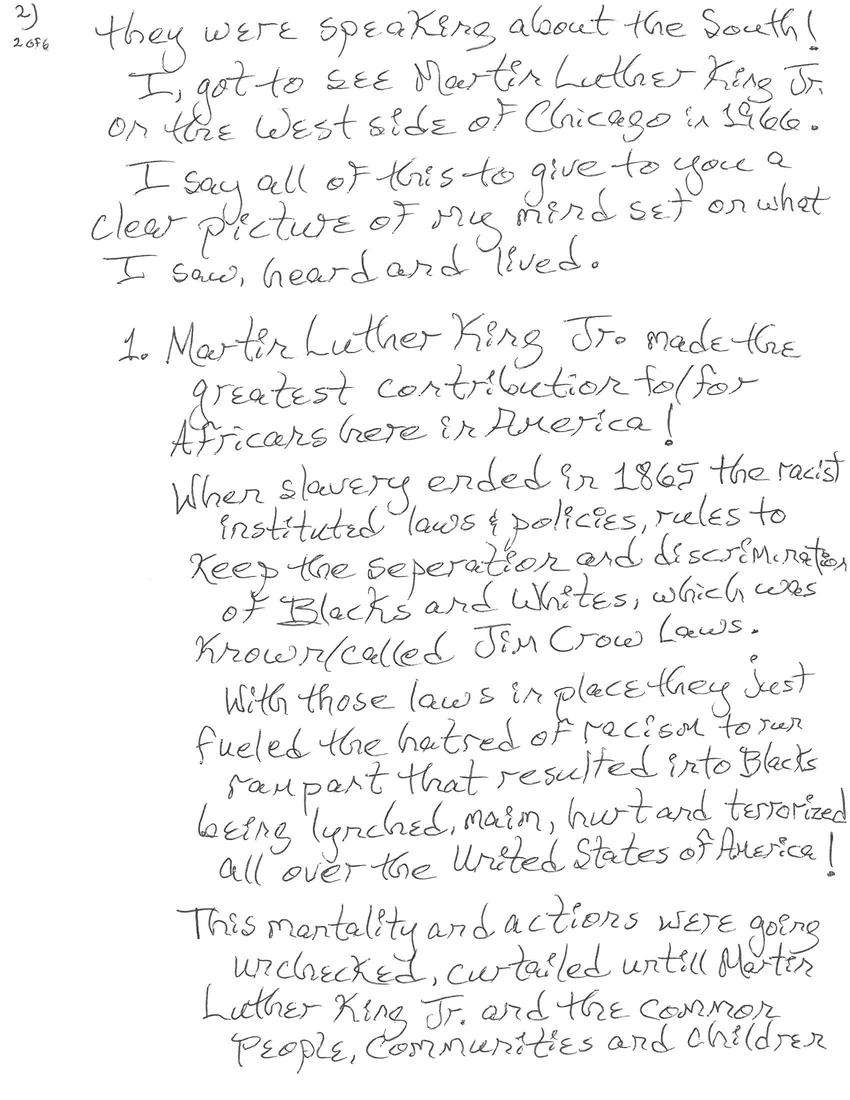 2)
2 of 6
they were speaking about the South!
I, got to see Martin Luther King Jr.
on the West side of Chicago in 1966.
I say all of this to give to you a
clear picture of my mind set on what
I saw, heard and lived.
1. Martin Luther King Jr. made the
greatest contribution to/for
Africans here in America!
When slavery ended in 1865 the racist
instituted laws & policies, rules to
keep the seperation and discrimination
of Blacks and Whites, which was
known/called Jim Crow Laws.
With those laws in place they just
fueled the hatred of racism to run
rampart that resulted into Blacks
being lynched, maim, hurt and terrorized
all over the United States of America!
This mentality and actions were going
unchecked, curtailed untill Martin
Luther King Jr. and the common
people, communities and children